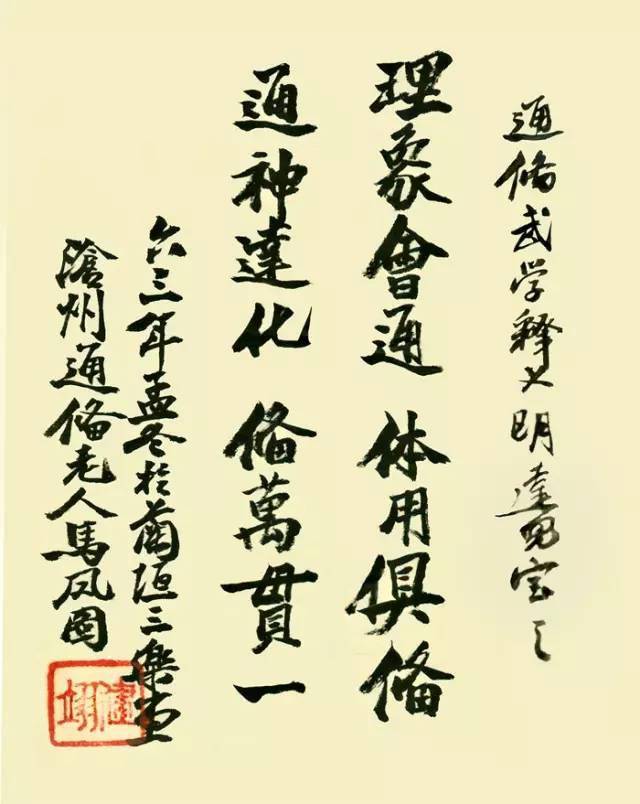 通俻武学释义明達兒宝之
理象會通 体用俱俻
通神達化 俻萬貫一
六三年孟冬於蘭垣三樂堂
滄州通俻老人馬凤图
健翊